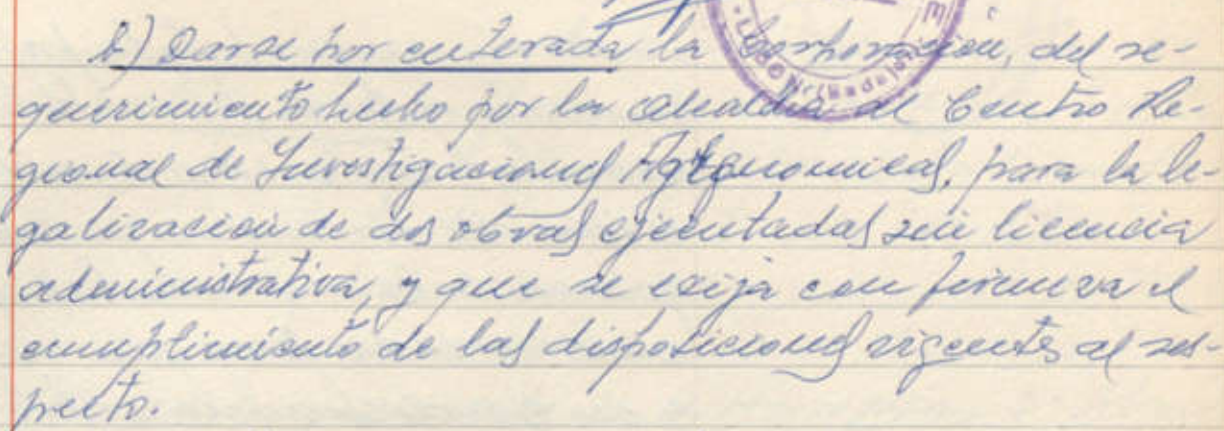 b) Darse por enterada la Corporación, del re-
querimiento hecho por la Alcaldía al Centro Re-
gional de Investigaciones Agronomicas, para la le-
galización de dos obras ejecutadas sin licencia
administrativa, y que se exija con firmeza el
cumplimiento de las disposiciones vigentes al res-
pecto.